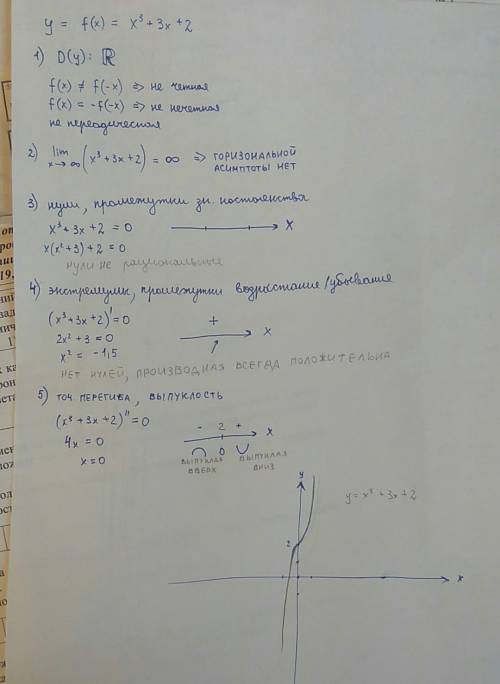 y = f(x) = x³ + 3x + 2
1) D(y): ℝ
f(x) ≠ f(-x) => не четная
f(x) = -f(-x) => не нечетная
не переодическая
2) lim x→∞ (x³ + 3x + 2) = ∞ => ГОРИЗОНАЛЬНОЙ
АСИМПТОТЫ НЕТ
3) нули, промежутки зн. постоянства
x³ + 3x + 2 = 0
x
x(x² + 3) + 2 = 0
нули не рациональные
4) экстремумы, промежутки возрастание/убывание
(x³ + 3x + 2)' = 0
+
x
2x² + 3 = 0
x² = -1,5
НЕТ НУЛЕЙ, ПРОИЗВОДНАЯ ВСЕГДА ПОЛОЖИТЕЛЬНА
5) ТОЧ ПЕРЕГИБА, ВЫПУКЛОСТЬ
(x³ + 3x + 2)'' = 0
- 2 +
x
4x = 0
0
x = 0
ВЫПУКЛАЯ
ВВЕРХ
ВЫПУКЛАЯ
ВНИЗ
y
y = x³ + 3x + 2
2
x